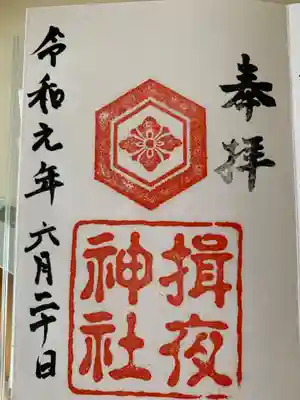 奉拝
揖夜
神社
令和元年 六月二十日